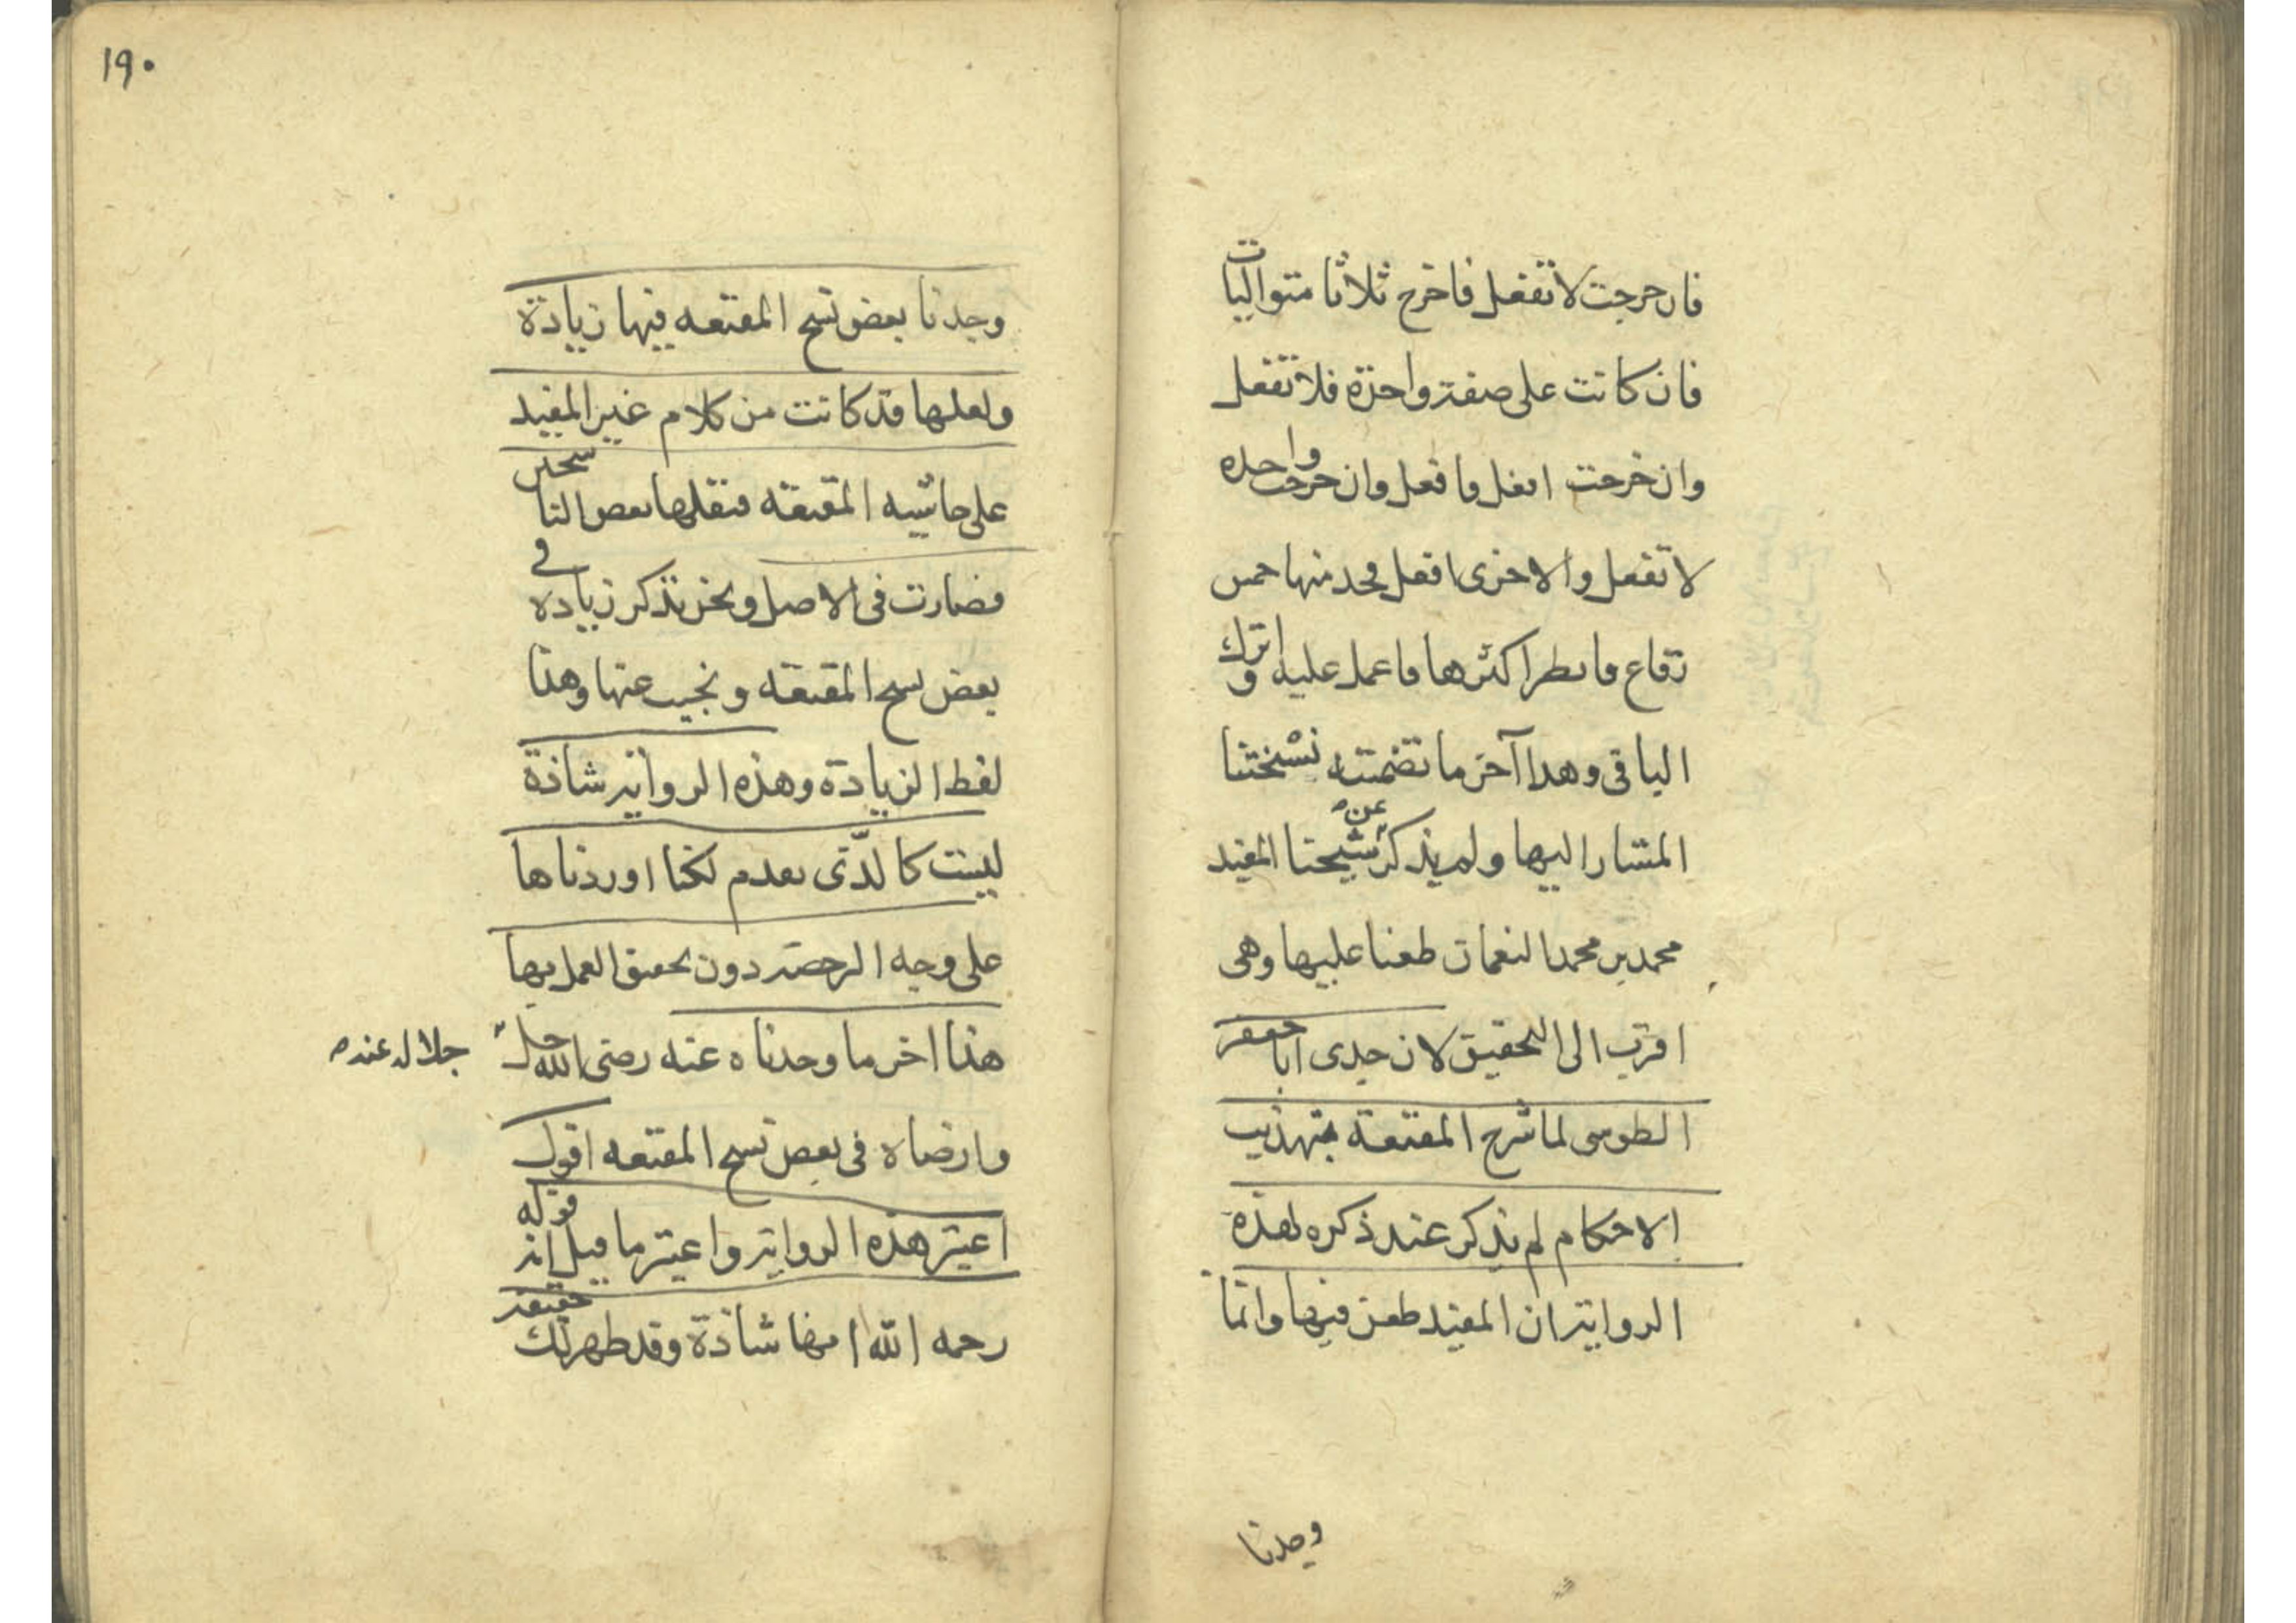 فان خرجت لا تفعل فاخرج ثلاثا متواليات
فان كانت على صفة واحدة فلا تفعل
وان خرجت افعل فافعل وان خرجت واحده
لا تفعل والاخرى افعل فخذ منها خمس
رقاع فانظر اكثرها فاعمل عليه واترك
الباقى وهذا آخر ما تضمنته نسختنا
المشار اليها ولم يذكر عن شيخنا المفيد
محمد بن محمد النعمان طعنا عليها وهى
اقرب الى التحقيق لان جدى ابا جعفر
الطوسى لما شرح المقنعة بتهذيب
الاحكام لم يذكر عند ذكره لهذه
الرواية ان المفيد طعن فيها وانما
وجدنا
١٩٠
وجدنا بعض نسخ المقنعه فيها زيادة
ولعلها قد كانت من كلام غير المفيد
على حاشيه المقنعة فنقلها بعض الناسخين
فصارت فى الاصل ونحن نذكر زياده فى
بعض نسخ المقنعة ونجيب عنها وهذا
لفظ الزيادة وهذه الرواية شاذة
ليست كالذى تقدم لكنا اوردناها
على وجه الرخصة دون تحقيق العمل بها
هذا اخر ما وجدناه عنه رضى الله جل
جلاله عنه
وارضاه فى بعض نسخ المقنعه اقول
اعتبر هذه الرواية واعتبر ما قيل انه قوله
رحمه الله انها شاذة وقد ظهر لك حقيقة